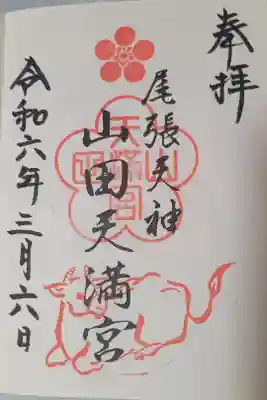 奉拝
尾張天神
山田天満宮
令和六年三月六日